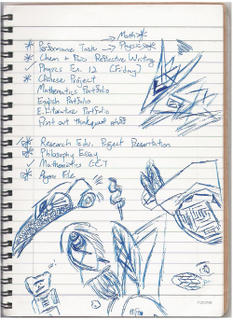 Maths*
* Performance Task → Physics*
* Chem + Bio Reflective Writing
* Physics Ex. 12 (Friday)
* Chinese Project
Mathematics Portfolio
English Portfolio
E. Literature Portfolio
Print out thinkquest
* Research Edu. Project Presentation
* Philosophy Essay
✓ Mathematics CCT
* File